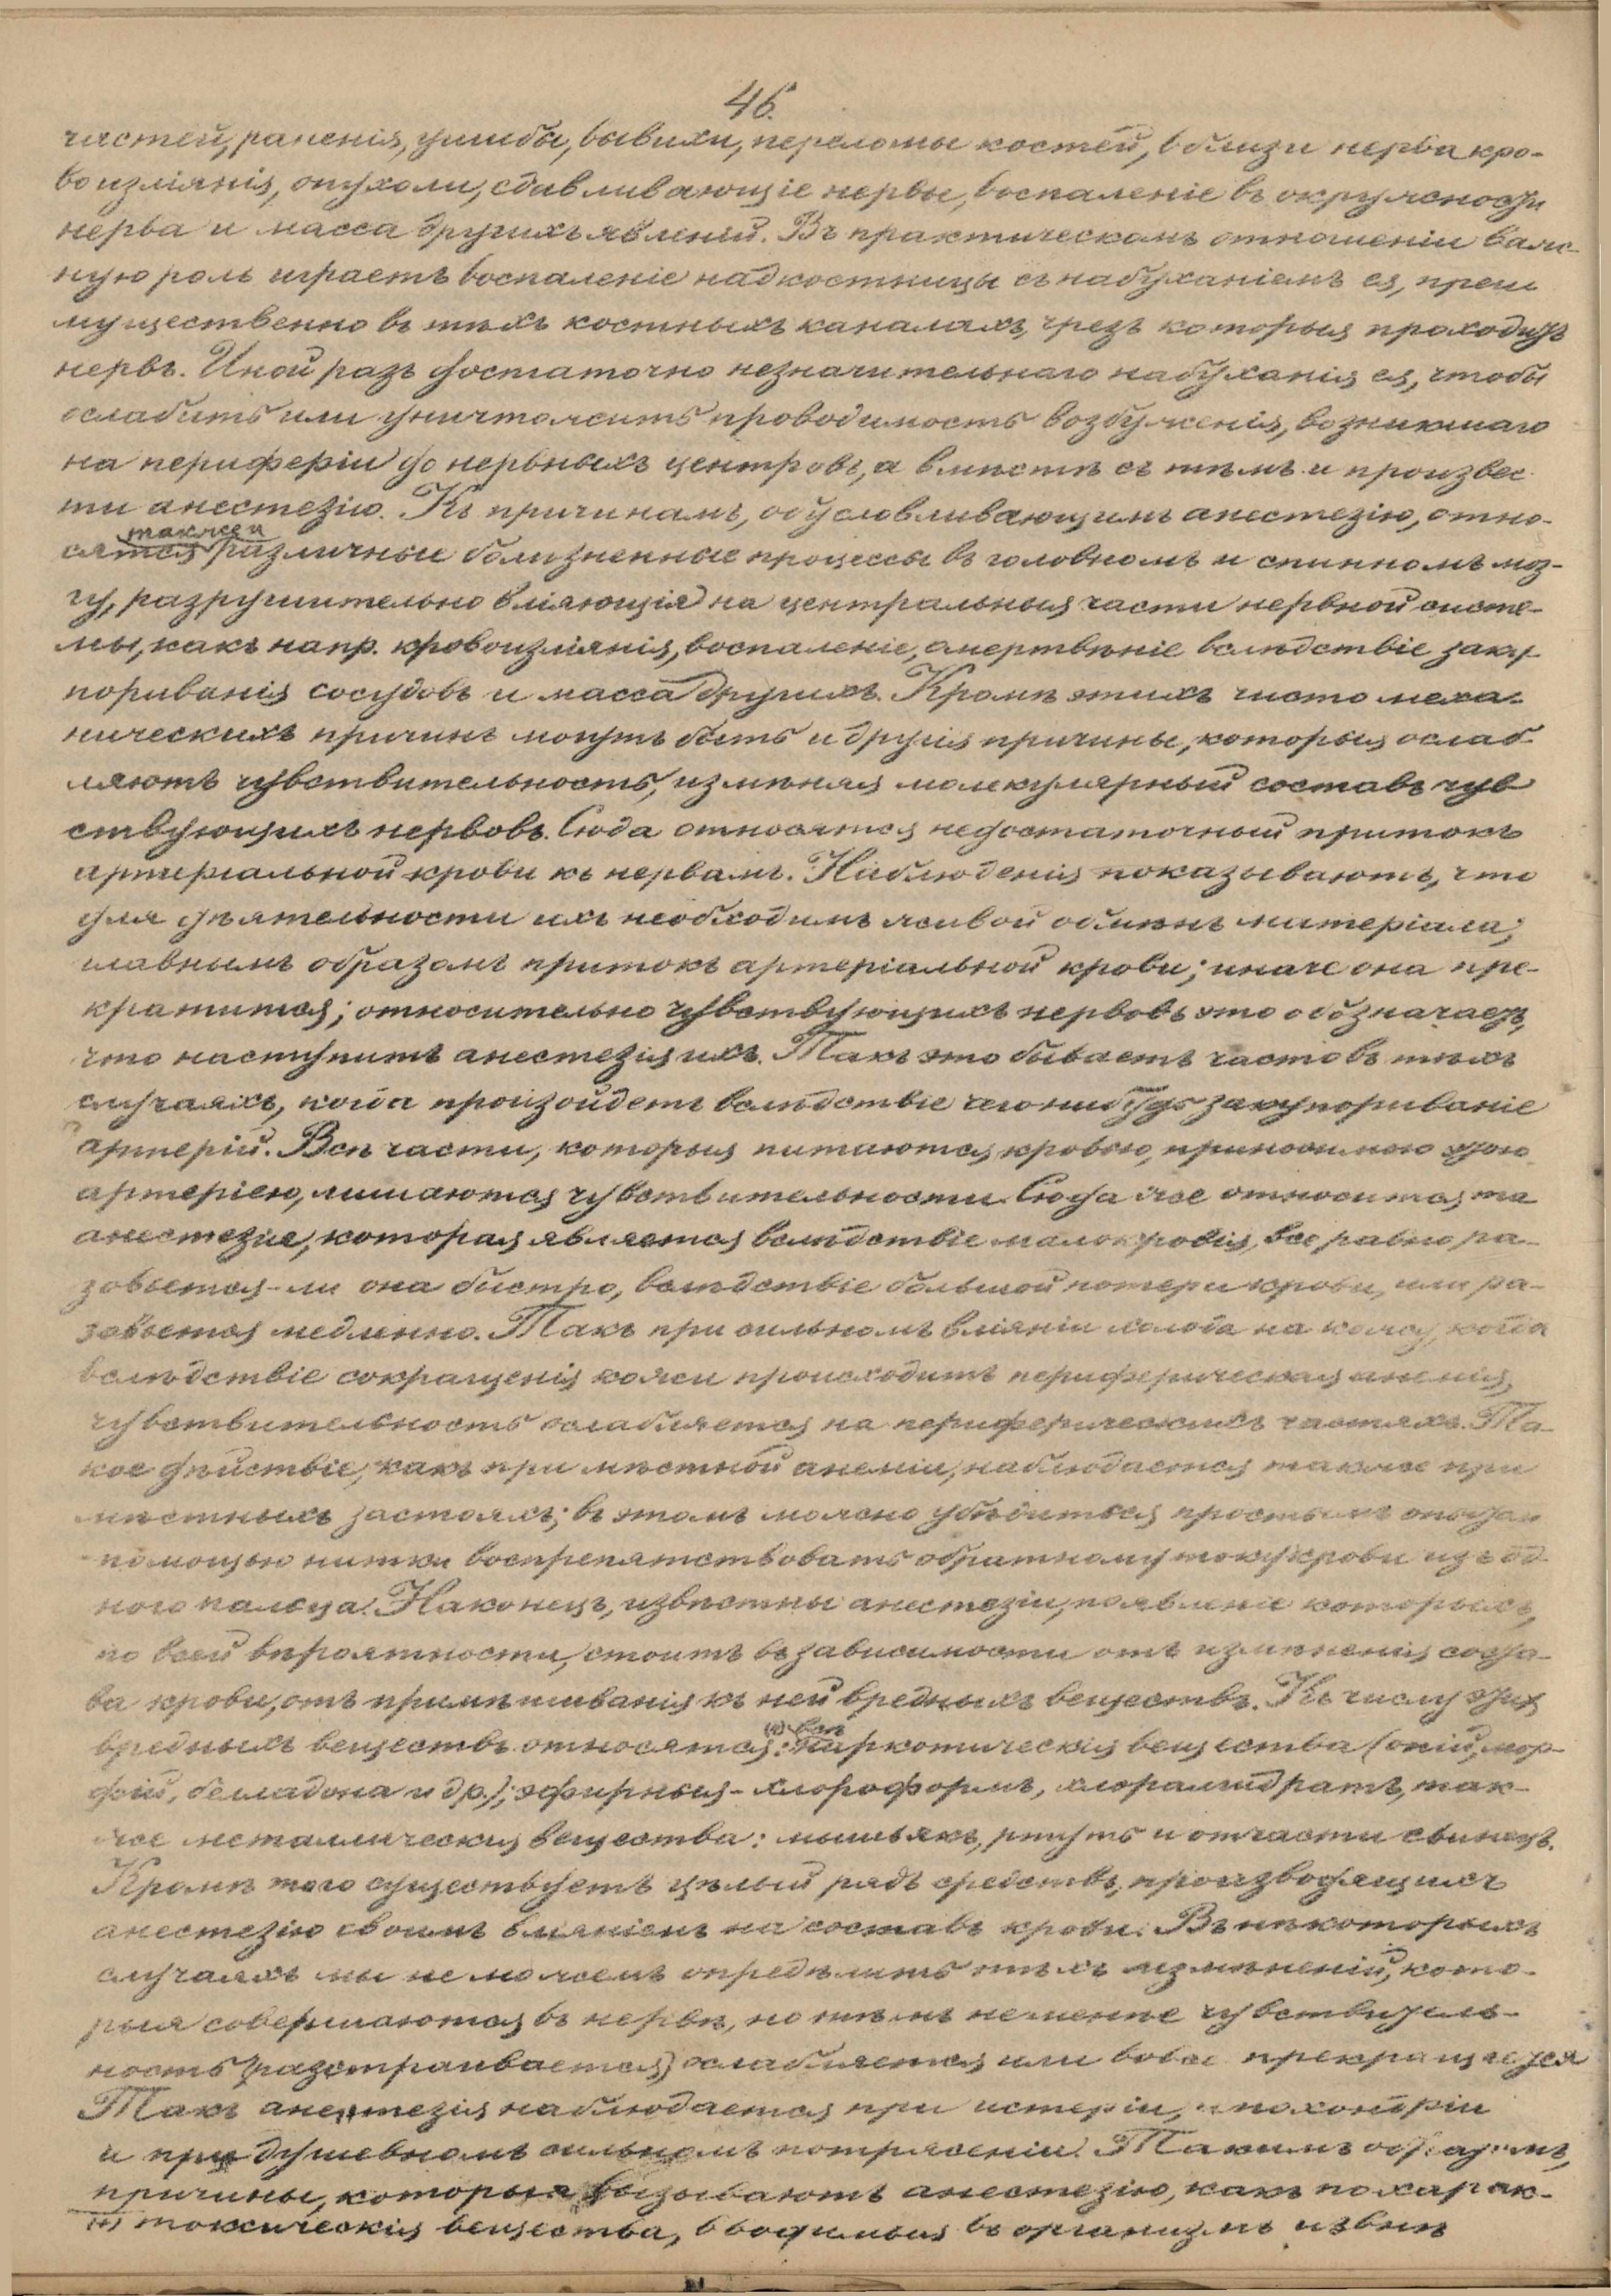 46.
частей, раненія, ушибы, вывихи, переломы костей, вблизи нерва кро-
воизліянія, опухоли, сдавливающіе нервы, воспаленіе въ окружности
нерва и масса другихъ явленій. Въ практическомъ отношеніи важ-
ную роль играетъ воспаленіе надкостницы съ набуханіемъ ея, преи
мущественно въ тѣхъ костныхъ каналахъ, чрезъ которыя проходитъ
нервъ. Иной разъ достаточно незначительнаго набуханія ея, чтобы
ослабить или уничтожить проводимость возбужденія, возникшаго
на периферіи до нервныхъ центровъ, а вмѣстѣ съ тѣмъ и произвес
ти анестезію. Къ причинамъ, обусловливающимъ анестезію, отно-
также и
сятся различные болѣзненные процессы въ головномъ и спинномъ моз-
гу, разрушительно вліяющія на центральныя части нервной систе-
мы, какъ напр. кровоизліянія, воспаленіе, омертвѣніе вслѣдствіе заку-
пориванія сосудовъ и масса другихъ. Кромѣ этихъ чисто меха-
ническихъ причинъ могутъ быть и другія причины, которыя ослаб-
ляютъ чувствительность, измѣняя молекулярный составъ чув
ствующихъ нервовъ. Сюда относятся недостаточный притокъ
артеріальной крови къ нервамъ. Наблюденія показываютъ, что
для дѣятельности ихъ необходимъ живой обмѣнъ матеріала;
главнымъ образомъ притокъ артеріальной крови; иначе она пре-
кратится; относительно чувствующихъ нервовъ это обозначаетъ,
что наступитъ анестезія ихъ. Такъ это бываетъ часто въ тѣхъ
случаяхъ, когда произойдетъ вслѣдствіе чего нибудь закупориваніе
артерій. Всѣ части, которыя питаются кровью, приносимою этою
артеріею, лишаются чувствительности. Сюда же относится та
анестезія, которая является вслѣдствіе малокровія, все равно ра-
зовьется-ли она быстро, вслѣдствіе большой потери крови, или ра-
зовьется медленно. Такъ при сильномъ вліяніи холода на кожу, когда
вслѣдствіе сокращенія кожи происходитъ периферическая анемія,
чувствительность ослабляется на периферическихъ частяхъ. Та-
кое дѣйствіе, какъ при мѣстной анеміи, наблюдается также при
мѣстныхъ застояхъ; въ этомъ можно убѣдиться простымъ опытомъ
помощью нитки воспрепятствовать обратному току крови изъ од-
ного пальца. Наконецъ, извѣстны анестезіи, появленіе которыхъ,
по всей вѣроятности, стоитъ въ зависимости отъ измѣненія соста-
ва крови, отъ примѣшиванія къ ней вредныхъ веществъ. Къ числу этихъ
вредныхъ веществъ относятся: наркотическія вещества (опій, мор-
фій, белладона и др.), эфирныя - хлороформъ, хлоралгидратъ, так-
же металлическія вещества: мышьякъ, ртуть и отчасти свинецъ.
Кромѣ того существуетъ цѣлый рядъ средствъ, производящихъ
анестезію своимъ вліяніемъ на составъ крови. Въ нѣкоторыхъ
случаяхъ мы не можемъ опредѣлить тѣхъ измѣненій, кото-
рыя совершаются въ нервѣ, но тѣмъ неменѣе чувствитель-
ность разстраивается, ослабляется или вовсе прекращается
Такъ анестезія наблюдается при истеріи, ипохондріи
и при душевномъ сильномъ потрясеніи. Такимъ образомъ,
причины, которыя вызываютъ анестезію, какъ по харак-
(+) токсическія вещества, вводимыя въ организмъ извнѣ